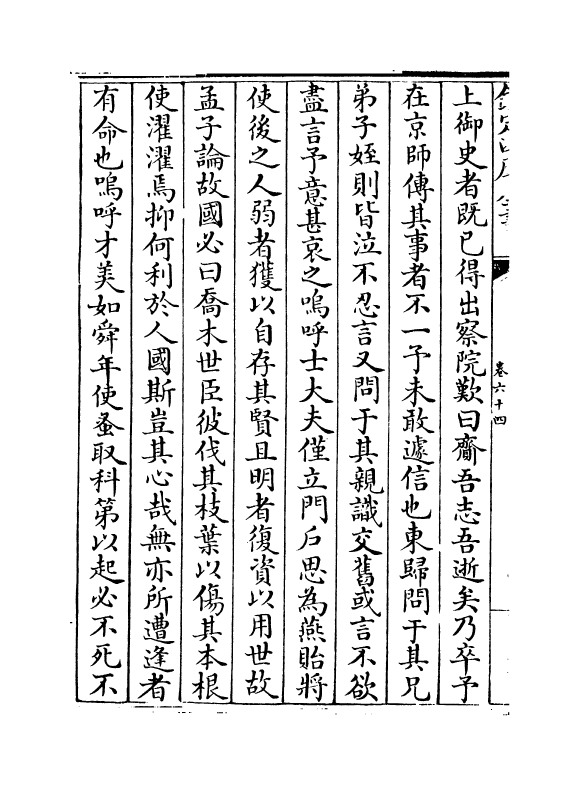 上御史者既已得出察院歎曰齎吾志吾逝矣乃卒予
在京師傳其事者不一予未敢遽信也東歸問于其兄
弟子姪則皆泣不忍言又問于其親識交舊或言不欲
盡言予意甚哀之嗚呼士大夫僅立門戶思為燕貽將
使後之人弱者獲以自存其賢且明者復資以用世故
孟子論故國必曰喬木世臣彼伐其枝葉以傷其本根
使濯濯焉抑何利於人國斯豈其心哉無亦所遭逢者
有命也嗚呼才美如舜年使蚤取科第以起必不死不
卷六十四